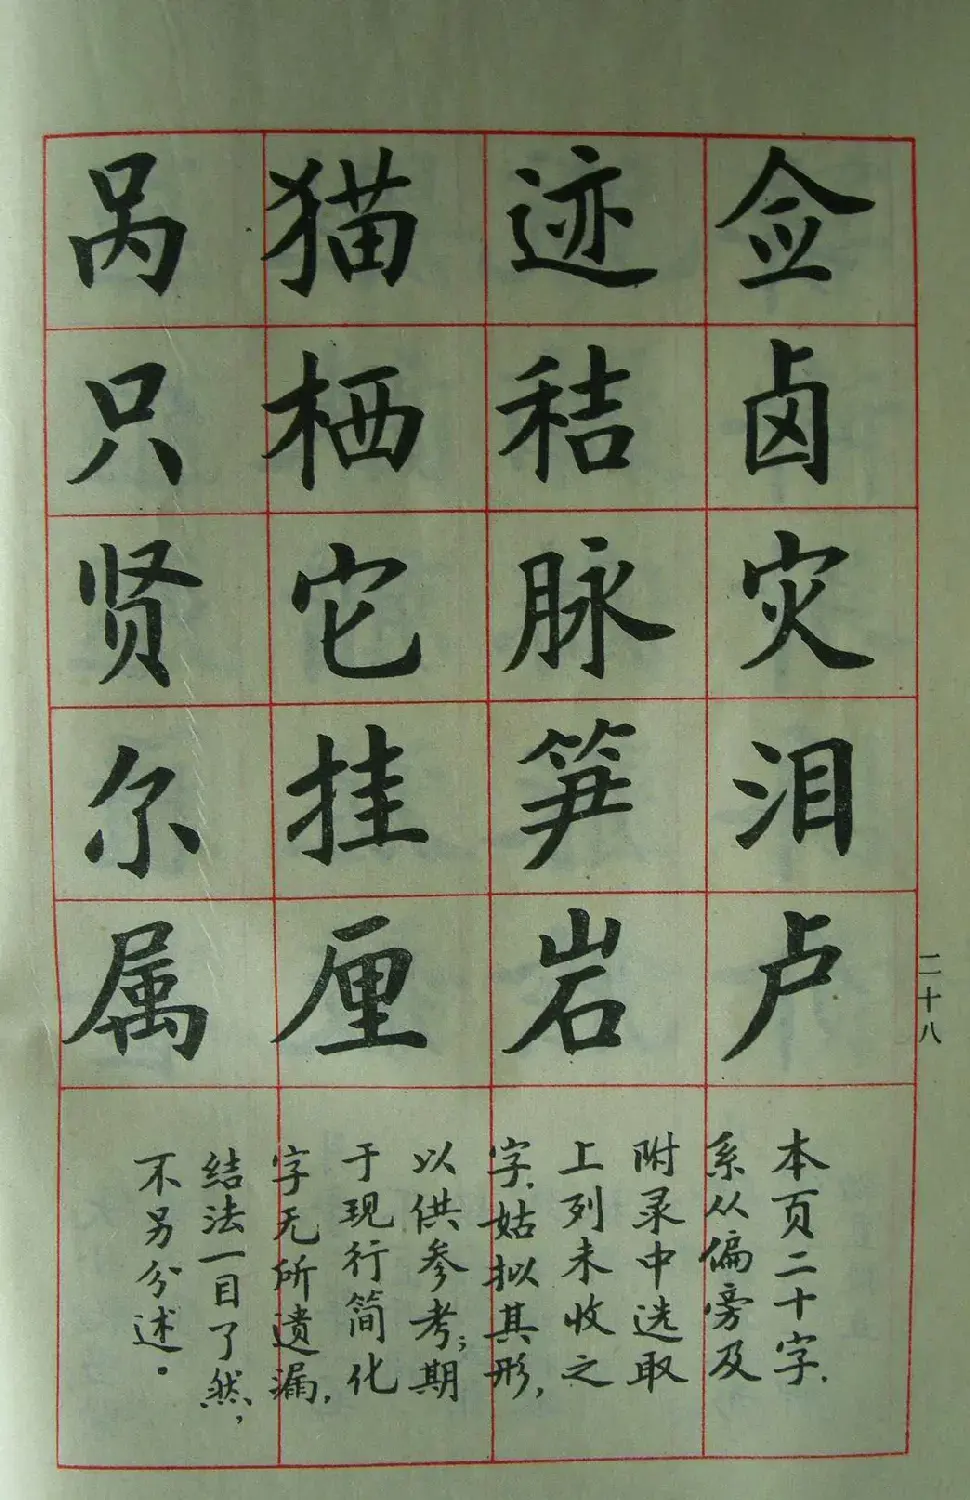 佥卤灾泪卢
迹秸脉笋岩
猫栖它挂厘
呙只贤尔属
本页二十字.
系从偏旁及
附录中选取
上列未收之
字.姑拟其形,
以供参考;期
于现行简化
字无所遗漏,
结法一目了然,
不另分述。
二十八